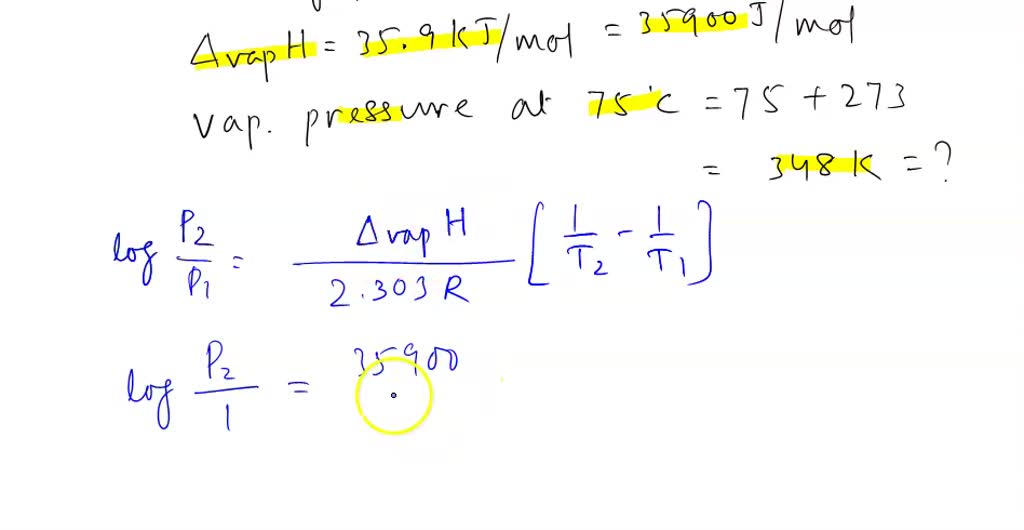 ΔvapH = 35.9 kJ/mol = 35900 J/mol
vap. pressure at 75°c = 75 + 273
= 348 K = ?
log P2/P1 = ΔvapH/2.303R [1/T2 - 1/T1]
log P2/1 = 35900